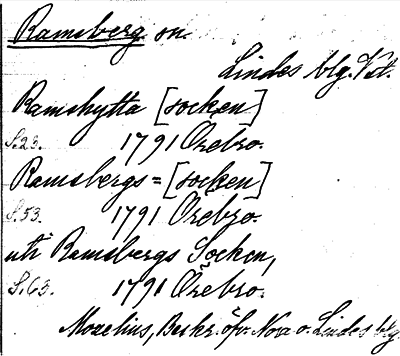 Ramsberg sn.
Lindes blg. Vstl.
Ramshytta [socken]
S.23. 1791 Örebro.
Ramsbergs= [socken]
S.53. 1791 Örebro.
uti Ramsbergs Socken,
S.63. 1791 Örebro.
Morelius, Beskr. öfv. Nora o. Lindes blg.